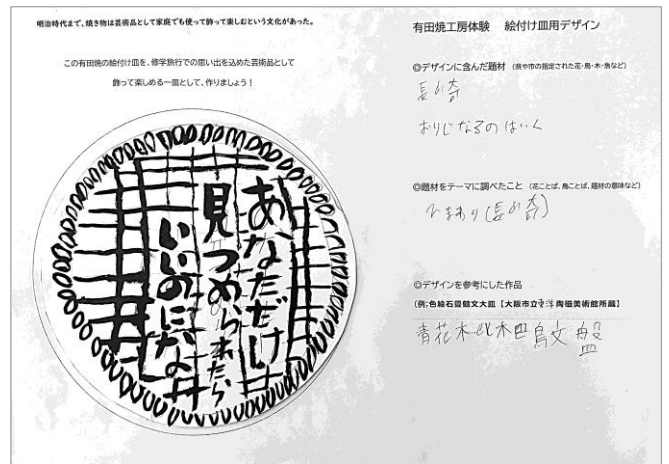 明治時代まで、焼き物は芸術品として家庭でも使って飾って楽しむという文化があった。
この有田焼の絵付け皿を、修学旅行での思い出を込めた芸術品として
飾って楽しめる一皿として、作りましょう！
あなただけ
見つめられたら
いいのになぁ
有田焼工房体験 絵付け皿用デザイン
◎デザインに含んだ題材 (県や市の指定された花・鳥・木・魚など)
長崎
おりじなるのはいく
◎題材をテーマに調べたこと (花ことば、鳥ことば、題材の意味など)
ひまわり(長崎)
◎デザインを参考にした作品
(例:色絵石畳鶴文大皿【大阪市立東洋陶磁美術館所蔵】
青花木 鳥文盤